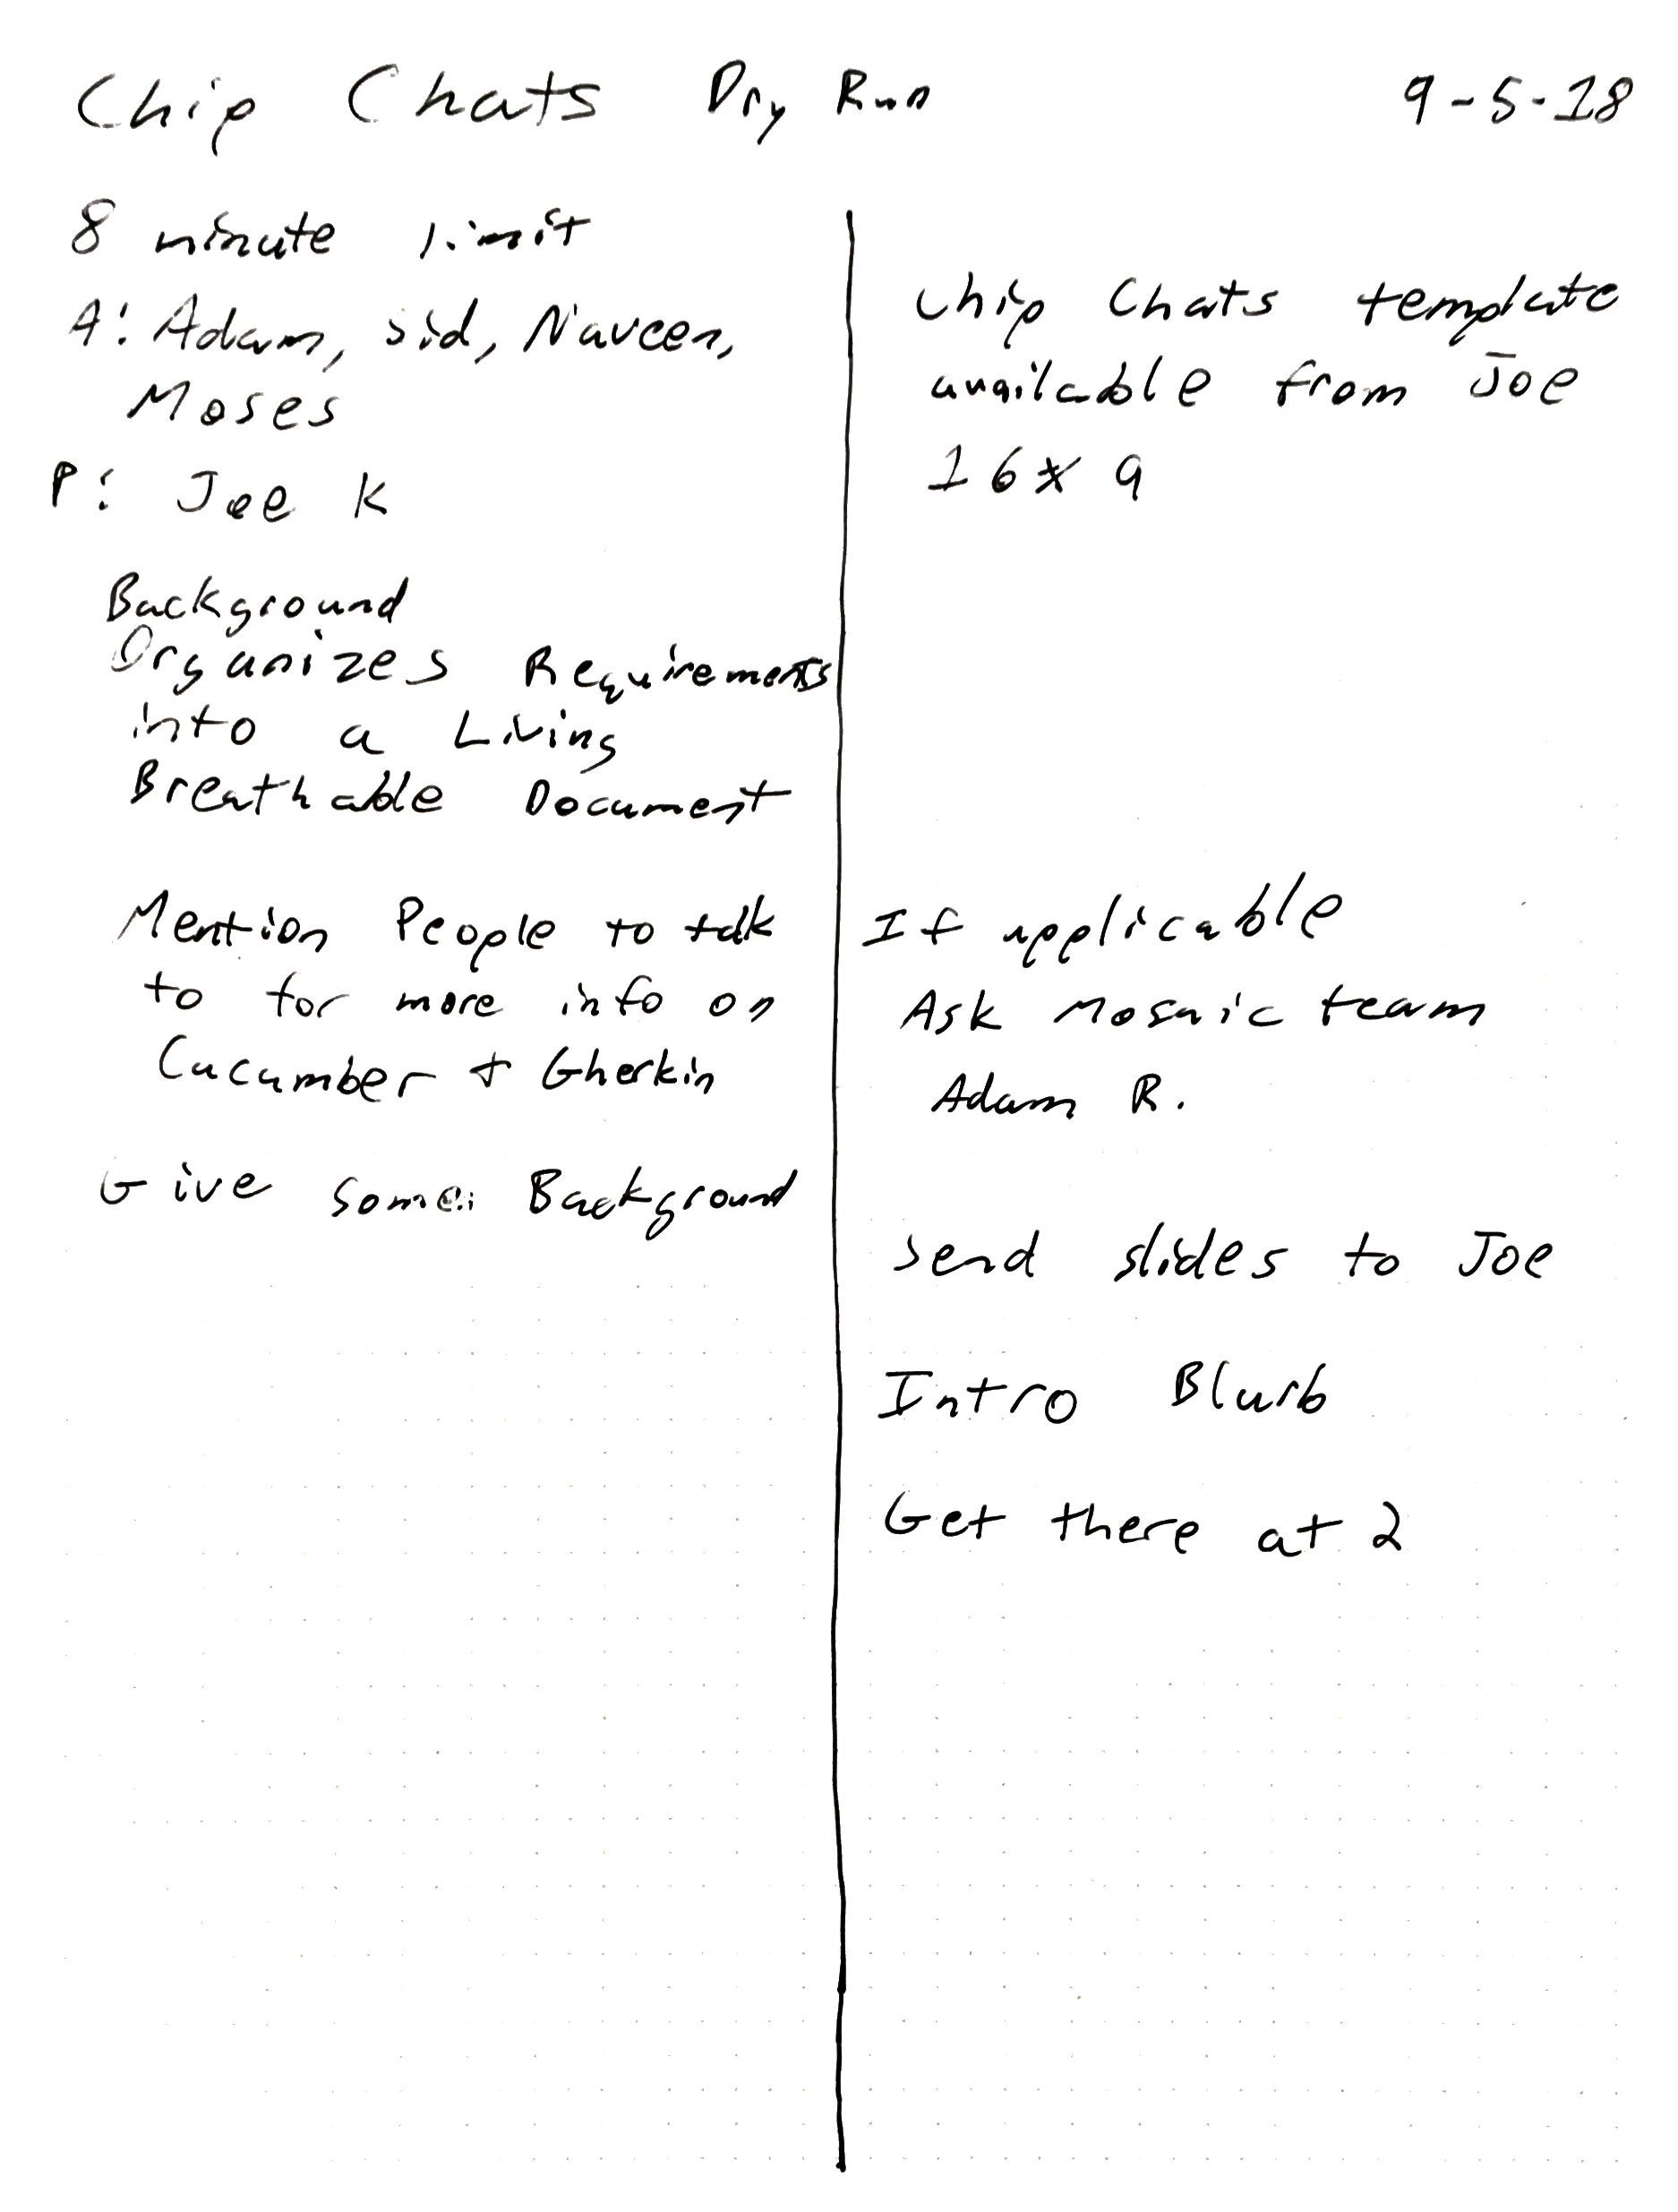 Chip Chats Dry Run 9-5-18
8 minute limit
A: Adam, Sid, Naveen,
Moses
P: Joe K
Background
Organizes Requirements
into a Living
Breathable Document
Mention People to talk
to for more info on
Cucumber + Gherkin
Give some Background
Chip Chats template
available from Joe
16x9
If applicable
Ask Mosaic team
Adam R.
Send slides to Joe
Intro Blurb
Get there at 2